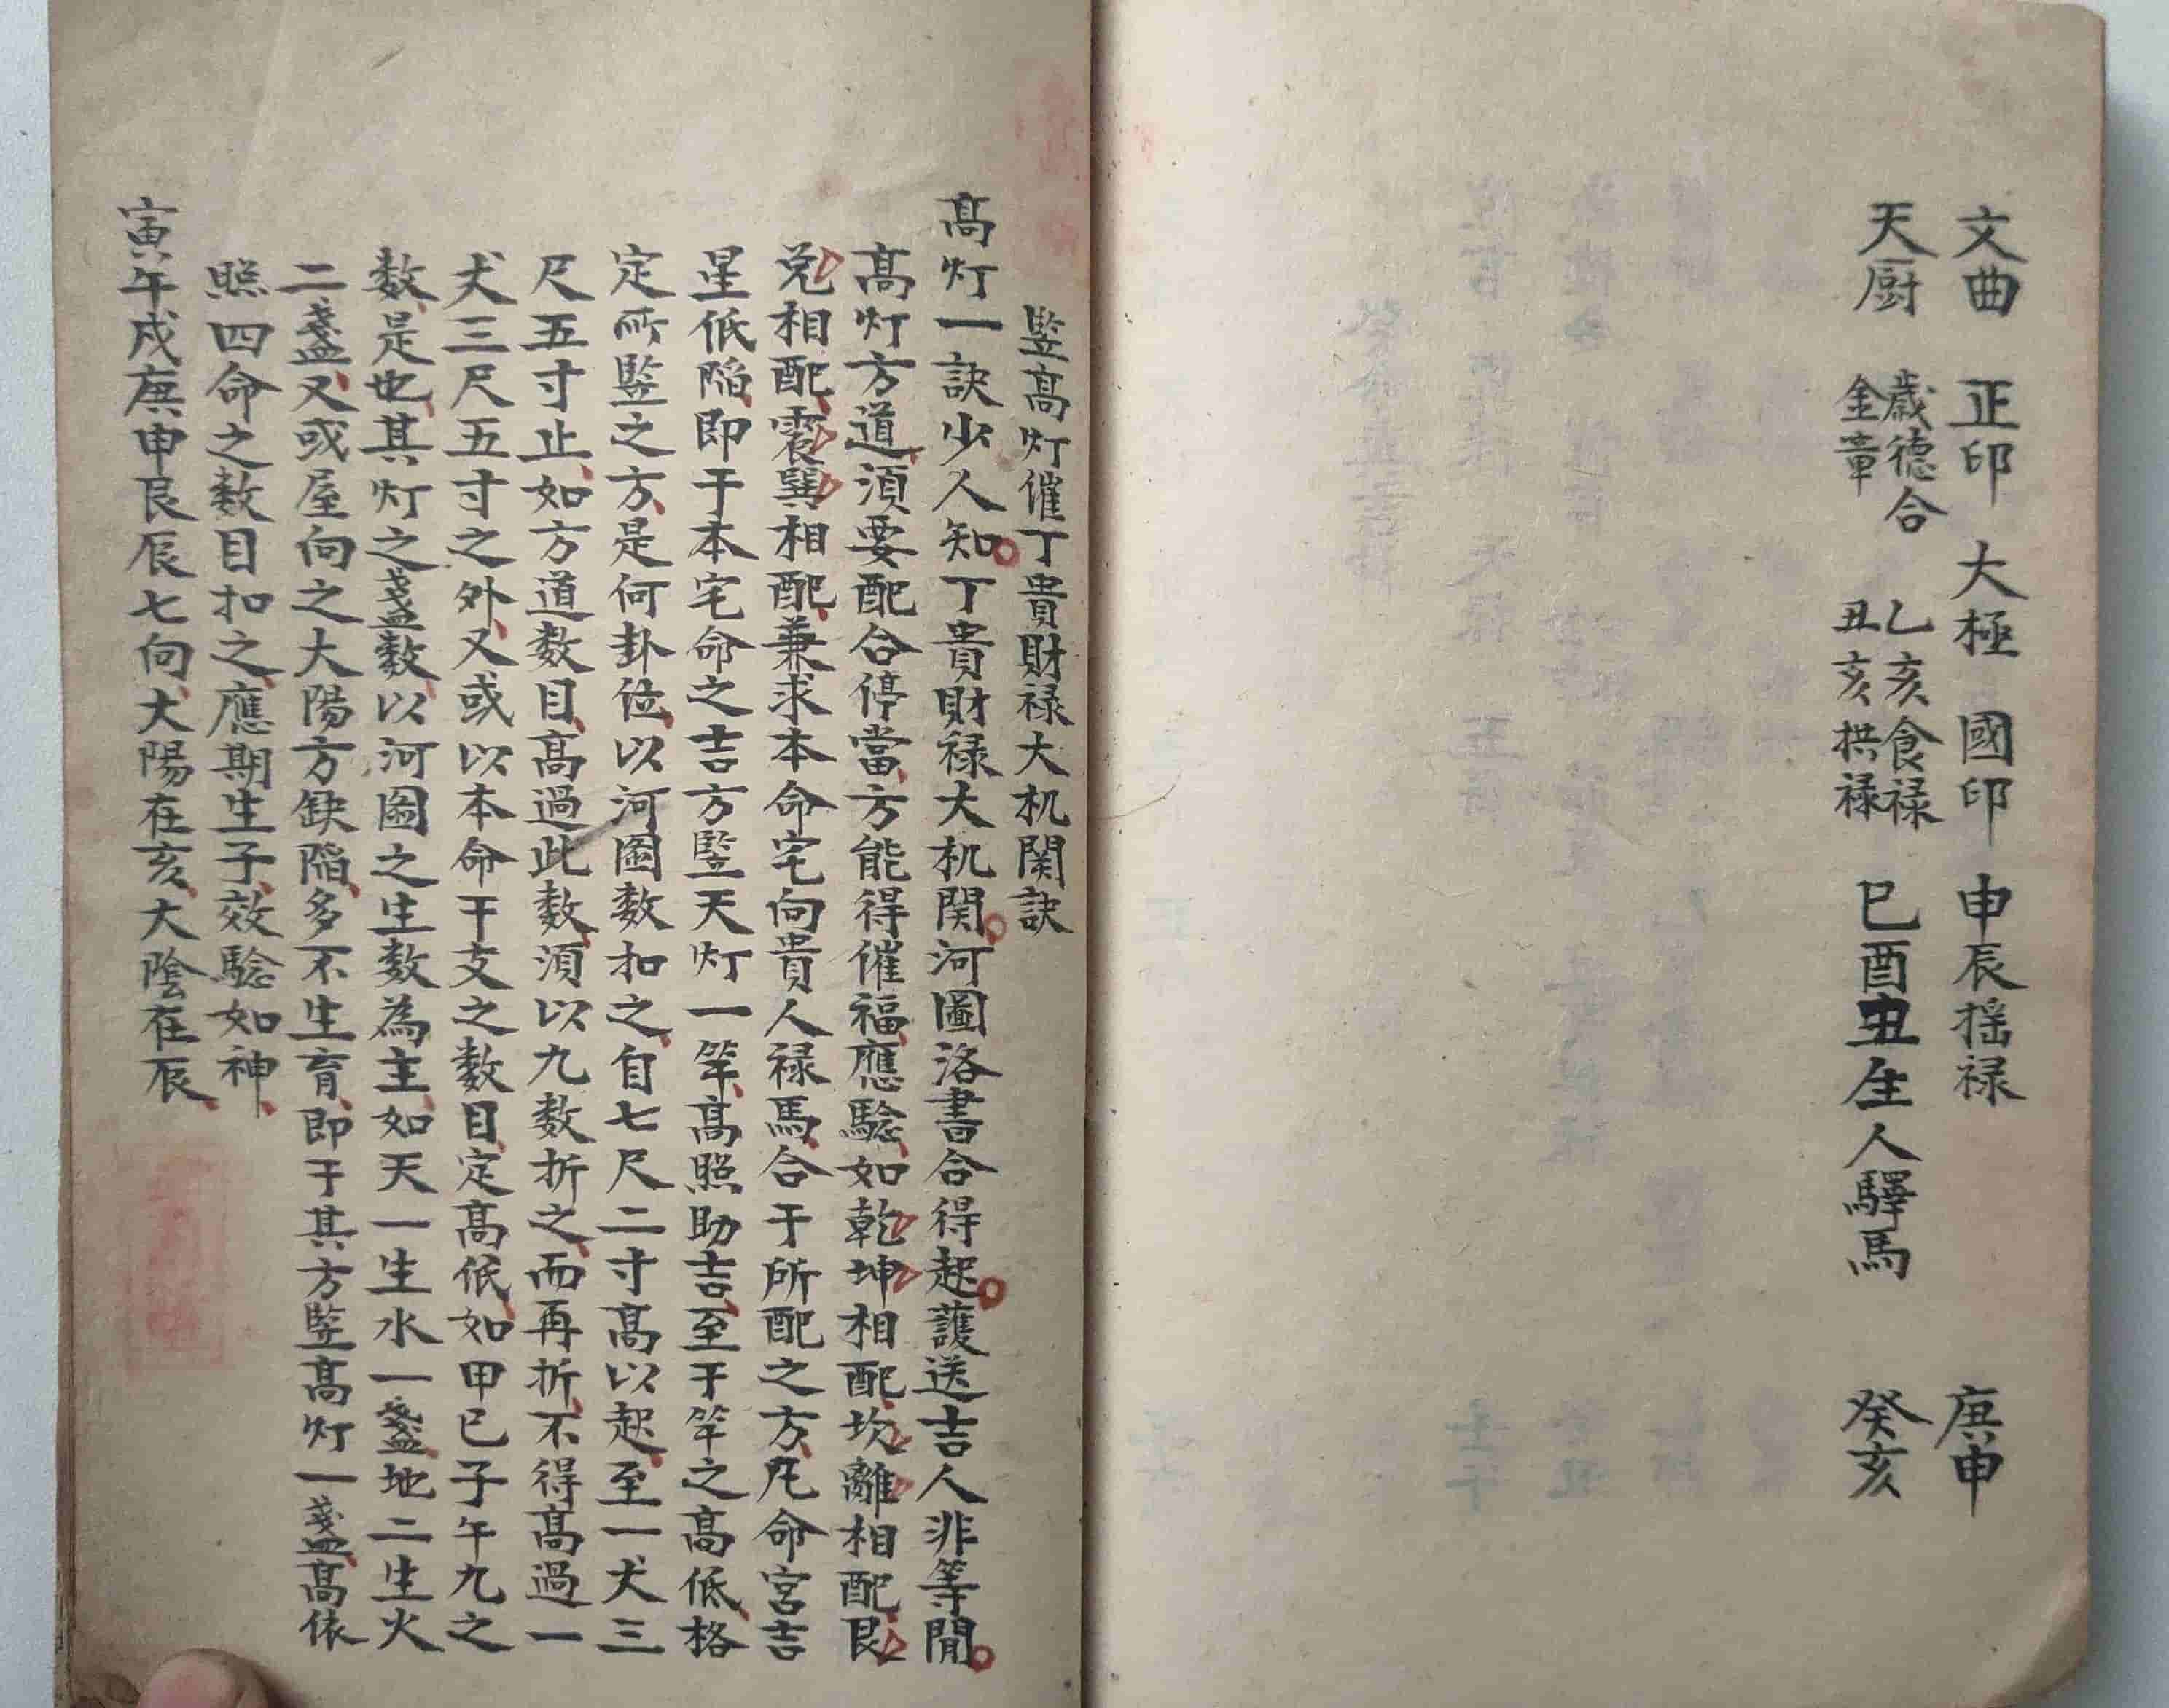 文曲 正印 大極 國印 申辰摇禄 庚申
天厨 歲德合 金章 乙亥食禄 丑亥拱禄 巳酉丑生人驛馬 癸亥
竪高灯催丁貴財禄大机関訣
高灯一訣少人知丁貴財禄大机関河圖洛書合得起護送吉人非等閒
高灯方道須要配合停當方能得催福應驗如乾坤相配坎離相配艮
兌相配震巽相配兼求本命宅向貴人禄馬合于所配之方凡命宮吉
星低陷即于本宅命之吉方竪天灯一竿高照助吉至于竿之高低格
定所竪之方是何卦位以河圖数扣之自七尺二寸高以起至一丈三
尺五寸止如方道数目高過此数須以九数折之而再折不得高過一
丈三尺五寸之外又或以本命干支之数目定高低如甲己子午九之
数是也其灯之盞数以河圖之生数為主如天一生水一盞地二生火
二盞又或屋向之大陽方缺陷多不生育即于其方竪高灯一盞高俵
照四命之数目扣之應期生子效驗如神
寅午戌庚申艮辰七向大陽在亥大陰在辰